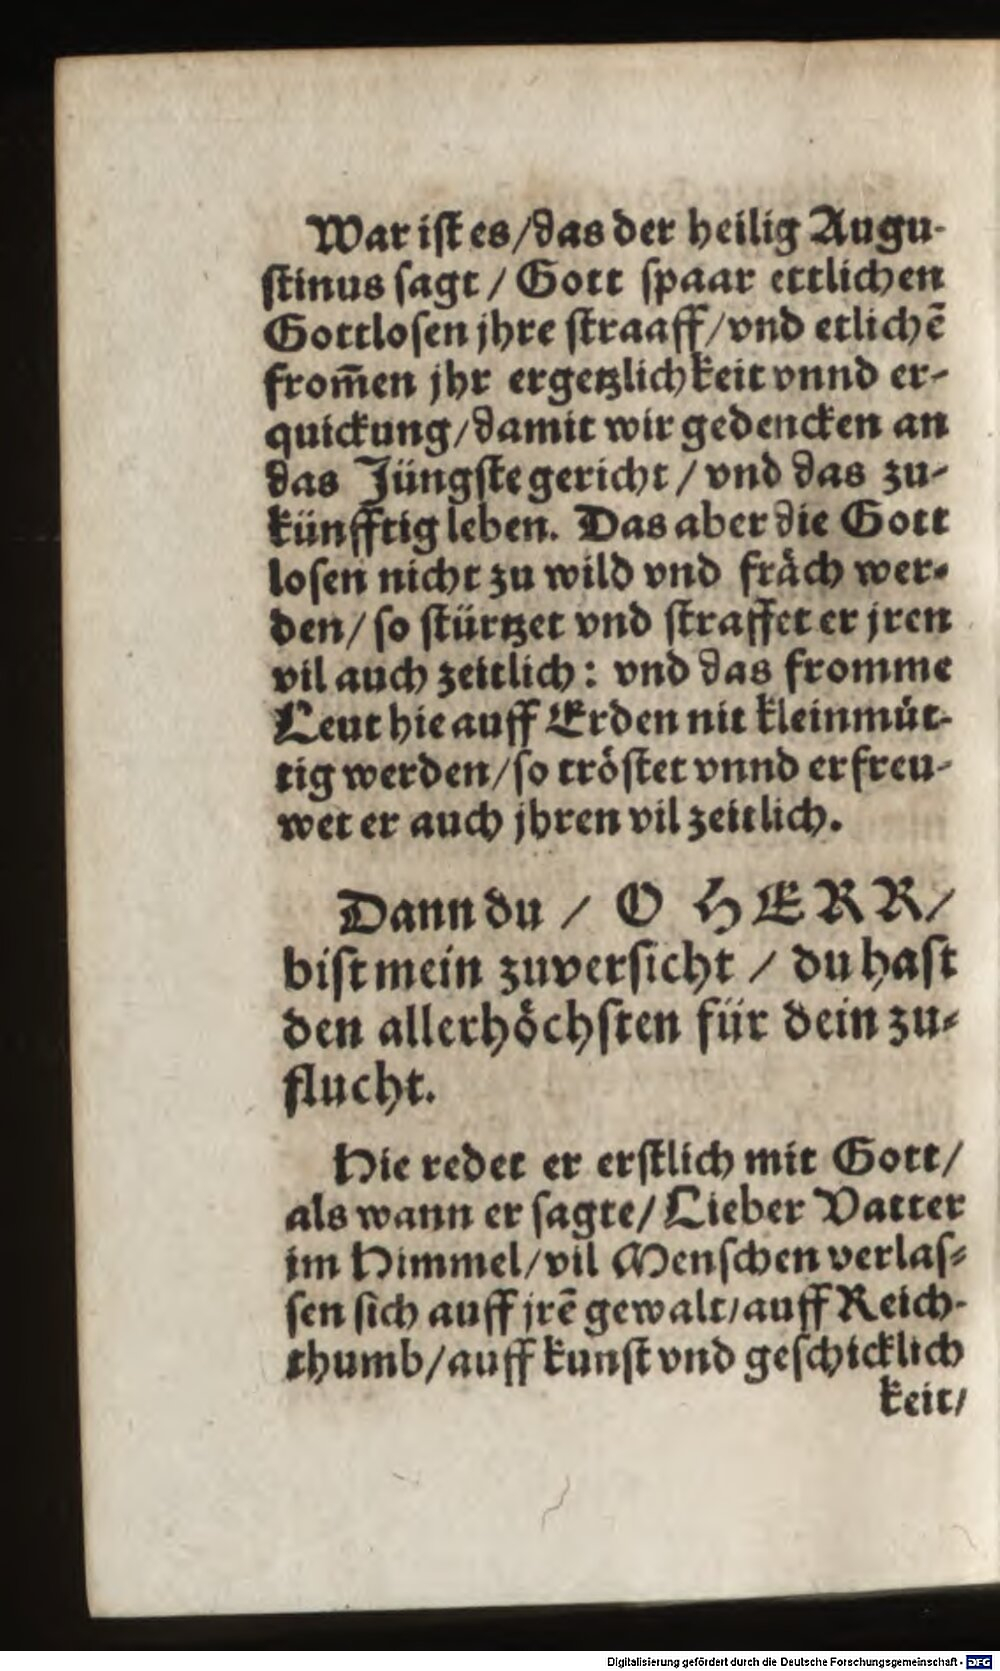 War ist es/das der heilig Augu-
stinus sagt / Gott spaar ettlichen
Gottlosen jhre straaff/vnd etlichẽ
from̃en jhr ergetzlichkeit vnnd er-
quickung/damit wir gedencken an
das Jüngste gericht / vnd das zu-
künfftig leben. Das aber die Gott
losen nicht zu wild vnd fräch wer-
den/ so stürtzet vnd straffet er jren
vil auch zeitlich: vnd das fromme
Leut hie auff Erden nit kleinmüt-
tig werden/so tröstet vnnd erfreu-
wet er auch jhren vil zeitlich.
Dann du / O HERR/
bist mein zuversicht / du hast
den allerhöchsten für dein zu-
flucht.
Hie redet er erstlich mit Gott/
als wann er sagte/ Lieber Vatter
im Himmel/vil Menschen verlas-
sen sich auff jrẽ gewalt/auff Reich-
thumb/auff kunst vnd geschicklich
keit/
Digitalisierung gefördert durch die Deutsche Forschungsgemeinschaft - DFG